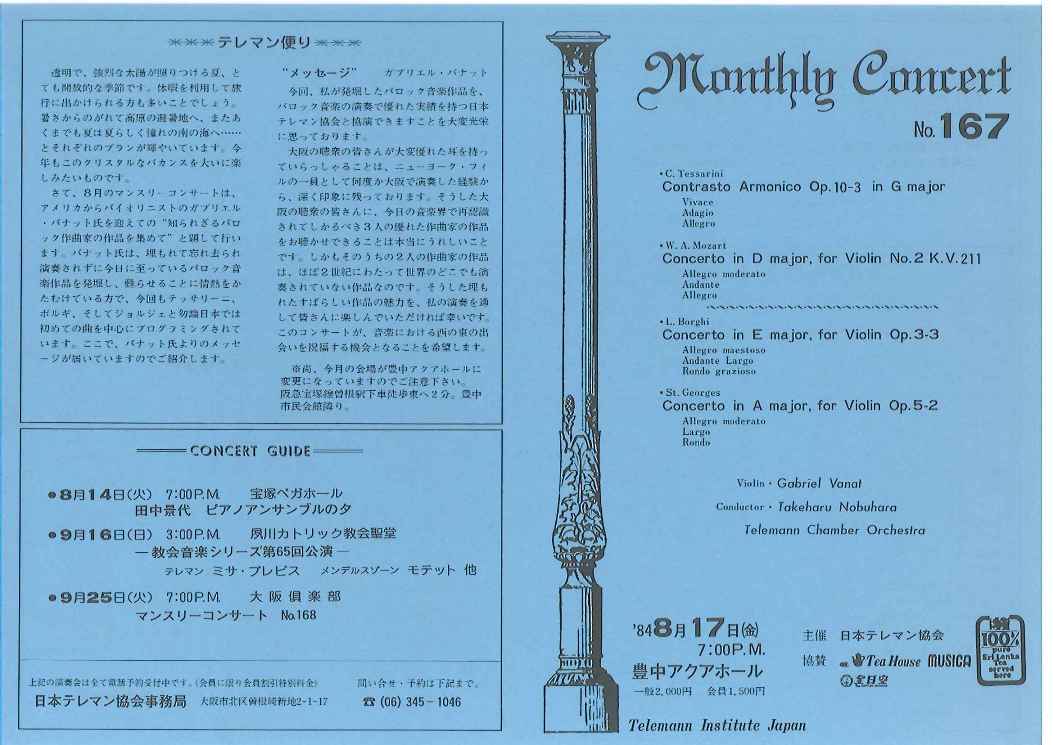 ＊＊＊テレマン便り＊＊＊
透明で、強烈な太陽が照りつける夏、と
ても開放的な季節です。休暇を利用して旅
行に出かけられる方も多いことでしょう。
暑さからのがれて高原の避暑地へ、またあ
くまでも夏は夏らしく憧れの南の海へ……
とそれぞれのプランが輝やいています。今
年もこのクリスタルなバカンスを大いに楽
しみたいものです。
さて、8月のマンスリーコンサートは、
アメリカからバイオリニストのガブリエル
・バナット氏を迎えての“知られざるバロ
ック作曲家の作品を集めて”と題して行い
ます。バナット氏は、埋もれて忘れ去られ
演奏されずに今日に至っているバロック音
楽作品を発掘し、蘇らせることに情熱をか
たむけている方で、今回もテッサリーニ、
ボルギ、そしてジョルジェと勿論日本では
初めての曲を中心にプログラミングされて
います。ここで、バナット氏よりのメッセ
ージが届いていますのでご紹介します。
“メッセージ” ガブリエル・バナット
今回、私が発掘したバロック音楽作品を、
バロック音楽の演奏で優れた実績を持つ日本
テレマン協会と協演できますことを大変光栄
に思っております。
大阪の聴衆の皆さんが大変優れた耳を持っ
ていらっしゃることは、ニューヨーク・フィ
ルの一員として何度か大阪で演奏した経験か
ら、深く印象に残っております。そうした大
阪の聴衆の皆さんに、今日の音楽界で再認識
されてしかるべき3人の優れた作曲家の作品
をお聴かせできることは本当にうれしいこと
です。しかもそのうちの2人の作曲家の作品
は、ほぼ2世紀にわたって世界のどこでも演
奏されていない作品なのです。そうした埋も
れたすばらしい作品の魅力を、私の演奏を通
して皆さんに楽しんでいただければ幸いです。
このコンサートが、音楽における西の東の出
会いを祝福する機会となることを希望します。
※尚、今月の会場が豊中アクアホールに
変更になっていますのでご注意下さい。
阪急宝塚線曽根駅下車徒歩東へ2分。豊中
市民会館隣り。
CONCERT GUIDE
●8月14日(火) 7:00P.M. 宝塚ベガホール
田中景代 ピアノアンサンブルの夕
●9月16日(日) 3:00P.M. 夙川カトリック教会聖堂
―教会音楽シリーズ第65回公演―
テレマン ミサ・ブレビス メンデルスゾーン モテット 他
●9月25日(火) 7:00P.M. 大阪倶楽部
マンスリーコンサート No.168
上記の演奏会は全て電話予約受付中です。(会員に限り会員割引特別料金) 問い合せ・予約は下記まで。
日本テレマン協会事務局 大阪市北区曽根崎新地2-1-17 ☎(06)345-1046
Monthly Concert
No.167
•C. Tessarini
Contrasto Armonico Op.10-3 in G major
Vivace
Adagio
Allegro
•W. A. Mozart
Concerto in D major, for Violin No.2 K.V.211
Allegro moderato
Andante
Allegro
•L. Borghi
Concerto in E major, for Violin Op.3-3
Allegro maestoso
Andante Largo
Rondo grazioso
•St. Georges
Concerto in A major, for Violin Op.5-2
Allegro moderato
Largo
Rondo
Violin・Gabriel Vanat
Conductor・Takeharu Nobuhara
Telemann Chamber Orchestra
'84 8月17日(金)
7:00P.M.
豊中アクアホール
一般2,000円 会員1,500円
主催 日本テレマン協会
協賛 Tea House MUSICA
全日空
100%
pure
Sri Lanka
Tea
served
here
Telemann Institute Japan